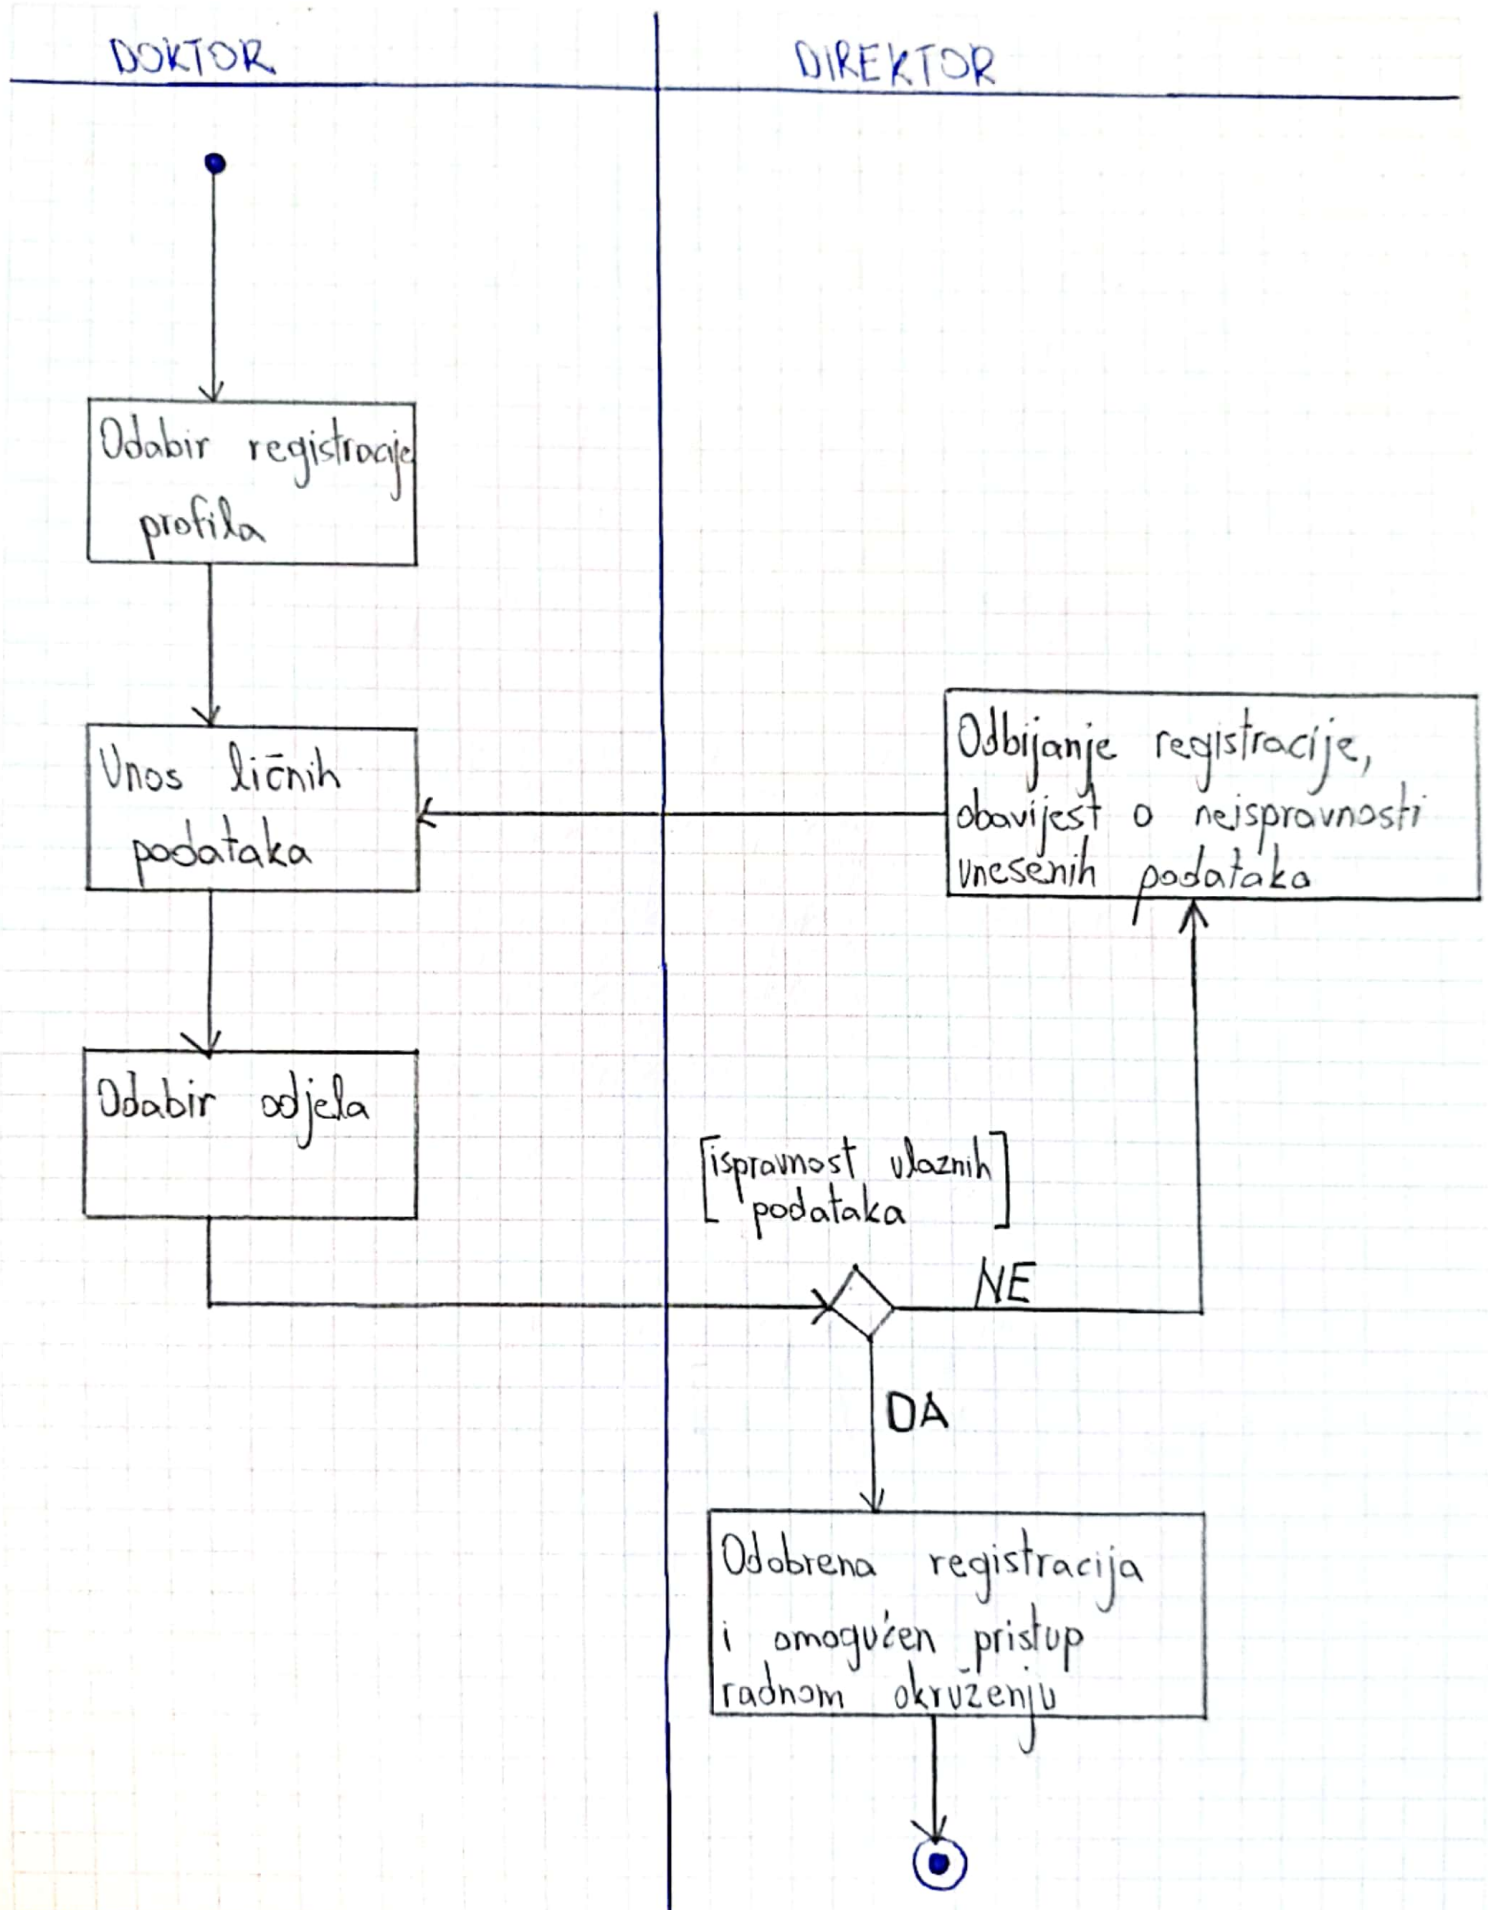 DOKTOR
DIREKTOR
Odabir registracije
profila
Unos ličnih
podataka
Odbijanje registracije,
obavijest o neispravnosti
unesenih podataka
Odabir odjela
[ispravnost ulaznih]
podataka
NE
DA
Odobrena registracija
i omogućen pristup
radnom okruženju